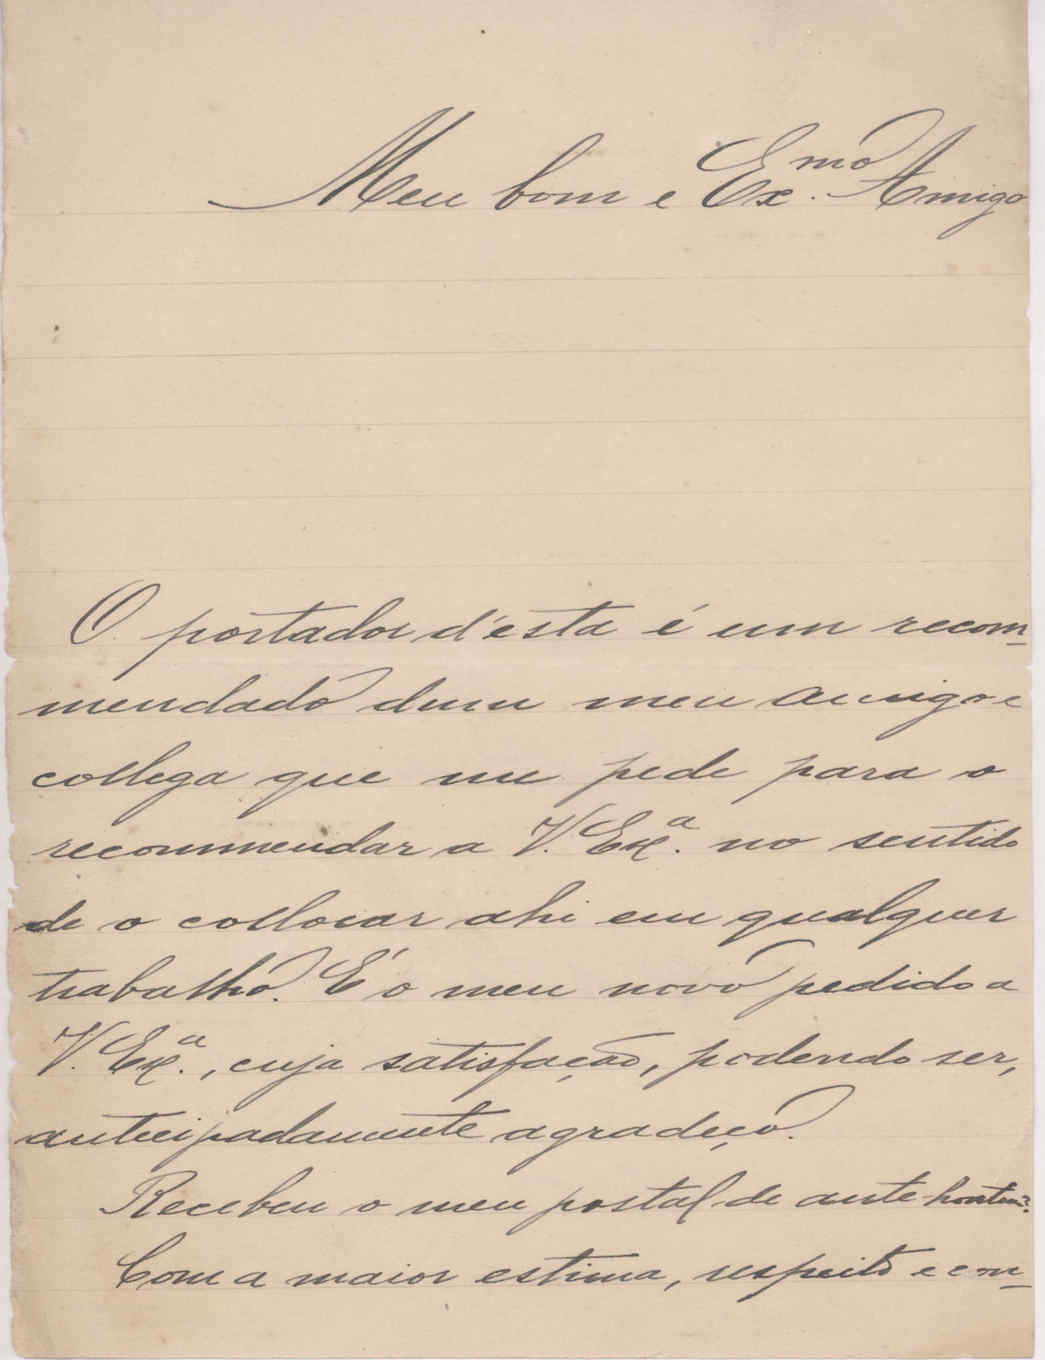 Meu bom e Ex.mo Amigo
O portador d'esta é um recom-
mendado dum meu amigo e
collega que me pede para o
recommendar a V. Exª. no sentido
de o collocar ahi em qualquer
trabalho. É o meu novo pedido a
V. Exª., cuja satisfação, podendo ser,
antecipadamente agradeço.
Recebeu o meu postal de ante-hontem?
Com a maior estima, respeito e con-